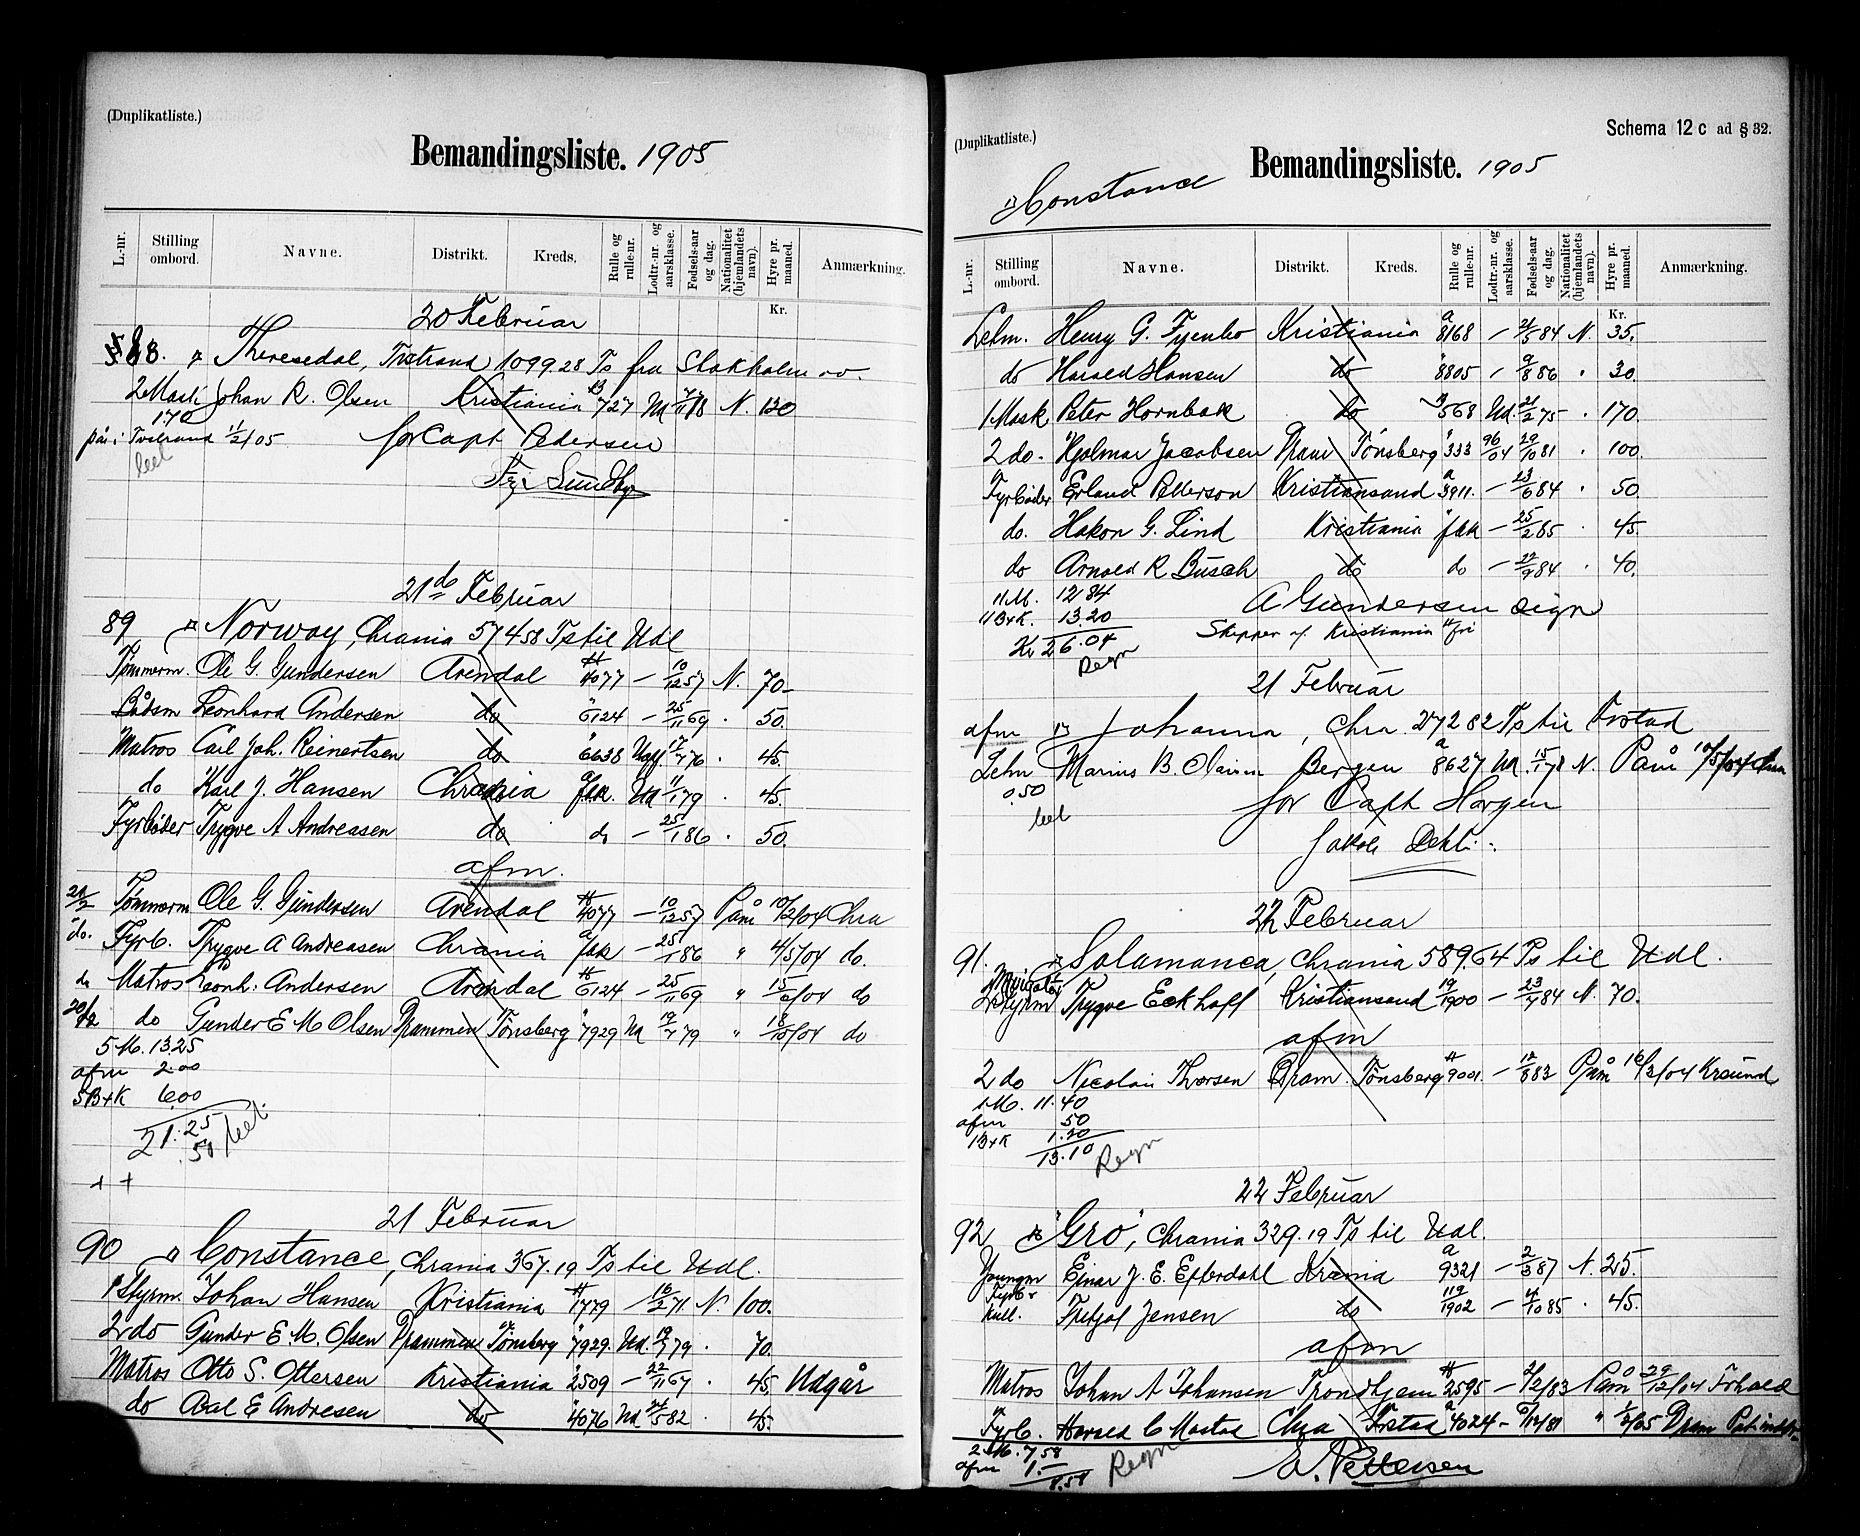 (Duplikatliste.)
Bemandingsliste. 1905
L.-nr. Stilling ombord. Navne. Distrikt. Kreds. Rulle og rulle-nr. Lodtr.-nr. og aarsklasse. Fødsels-aar og dag. Nationalitet (hjemlandets navn). Hyre pr. maaned. Anmærkning.
Kr.
20 Februar
88. Theresedal, Tvetrand 1099.28 Ts fra Stokholm
2 Mask Johan R. Olsen Kristiania 727 Ud N. 120
1.70
på i Tvetrand 11/2/05 for Capt Pedersen
21de Februar
89 Norway, Chrania 574 58 Ts til Udl
Tømmerm. Ole G. Gundersen Arendal 4077 — 10/12 57 N. 70 –
Bådsm Leonhard Andersen do 6124 — 25/11 69 . 50.
Matros Carl Joh. Reinertsen do 6638 76 . 45.
do Karl J. Hansen Chrania fak. Ud 11/1 79 . 45.
Fyrbøder Trygve A Andreasen do do — 25/1 86 . 50.
afm.
21/2 Tømmerm Ole G. Gundersen Arendal 4077 — 10/12 57 Påm 10/2/04 Chra
do. Fyrb. Trygve A Andreasen Chrania fak — 25/1 86 " 4/5/04 do.
do Matros Leonh. Andersen Arendal 6124 — 25/11 69 " do
20/2 do Gunder E M Olsen Drammen Tønsberg 7929 Ud 79 " 18/10/04 do
5 M. 13.25
afm 2.00
5 B+K 6.00
21.25
.50
+ +
21 Februar
90 Constance, Chrania 367.19 Ts til Udl.
1 Styrm. Johan Hansen Kristiania 1779 71 N. 100.
2 do Gunder E M. Olsen Drammen Tønsberg 7929. Ud. 79 . 70.
Matros Otto S. Ottersen Kristiania 2509 — 22/11 67 . 45. Udgår
do Axel E Andresen do 4076 Ud 82 . 45.
(Duplikatliste.) Schema 12 c ad § 32.
Bemandingsliste. 1905
Constance
L.-nr. Stilling ombord. Navne. Distrikt. Kreds. Rulle og rulle-nr. Lodtr.-nr. og aarsklasse. Fødsels-aar og dag. Nationalitet (hjemlandets navn). Hyre pr. maaned. Anmærkning.
Kr.
Letm. Henry G. Fyenbo Kristiania a 8168 — 84 N. 35.
do Harald Hansen do 8805 — 9/8 86 . 30.
1 Mask Peter Hornbak do 568 Ud. 21/2 75 . 170.
2 do. Hjalmar Jacobsen Dram Tønsberg 333 96/04 29/10 81 . 100.
Fyrbøder Erland Petterson Kristiansand a 3911. — 23/6 84 . 50.
do. Hakon G. Lind Kristiania fak — 25/2 85 . 45.
do Arnold R Busch do do — 22/9 84 . 40.
11 M. 12 84
11 B+K. 13.20
Kr 26.04
Regn
A Gundersen sign
Skipper af Kristiania
21 Februar
afm Johanna, Chra. 272 82 Ts til Frstad
Letm Marius B. Bergen a 8627 Ud. N. Påm
0.50
for Capt Horgen
Jakob Dehli
22 Februar
91. Salamanca, Chrania 589.64 Ts til Udl.
2 Styrm Trygve Eckhoff Kristiansand 19/1900 — 84 N. 70.
afm
2 do Nicolai Thorsen Dram. Tønsberg 9001. — 12/8 83 Påm Krsund
1 M. 11.40
afm 50
1 B+K 1.20
13.10
Regn
22 Februar
92 "Gro", Chrania 329.19 Ts til Udl.
Youngm Einar J. E. Efterdahl Krania a 9321 — 2/3 87 N. 25.
Fyrb & Kull. Fritjof Jensen do 1902 — 4/10 85 . 45.
afm
Matros Johan A Johansen Trondhjem 2595 — 21/2/83 Påm 29/12/04 Frhald
Fyrb. Harald C Mostad Chra Frstad a 4024 — " Dram
2 M. 7.58
afm 1.—
8.58
Regn
A. Pettersen